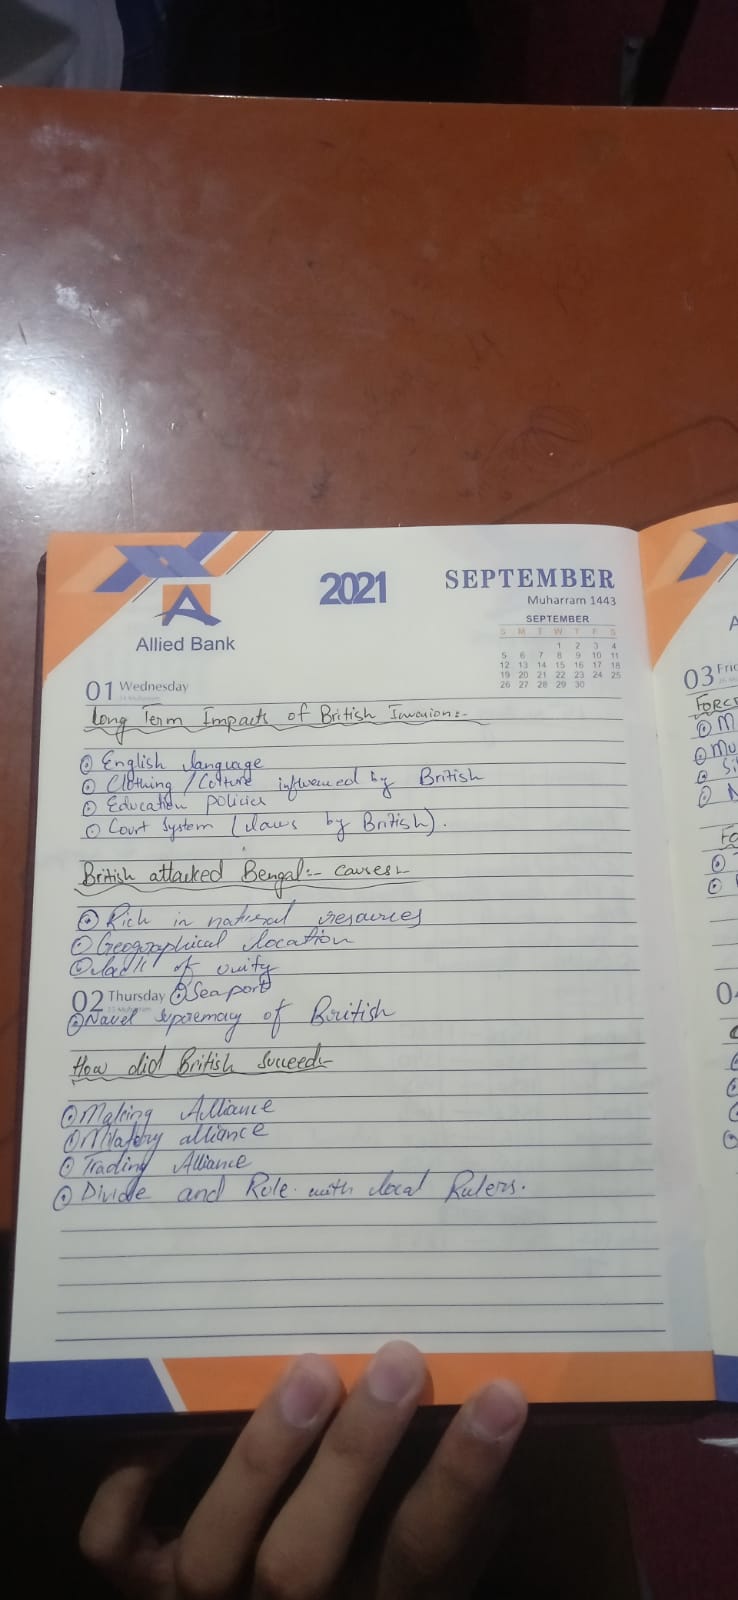 2021
SEPTEMBER
Muharram 1443
SEPTEMBER
S M T W T F S
1 2 3 4
5 6 7 8 9 10 11
12 13 14 15 16 17 18
19 20 21 22 23 24 25
26 27 28 29 30
Allied Bank
01 Wednesday
Long Term Impacts of British Invasion:-
English language
Clothing / Culture influenced by British
Education policies
Court System (laws by British).
British attacked Bengal:- Causes:-
Rich in natural resources
Geographical location
lack of unity
02 Thursday Sea port
Navel supremacy of British
How did British Succeed:-
Making Alliance
Milatery alliance
Trading Alliance
Divide and Rule with local Rulers.
03 Fri
FORCE